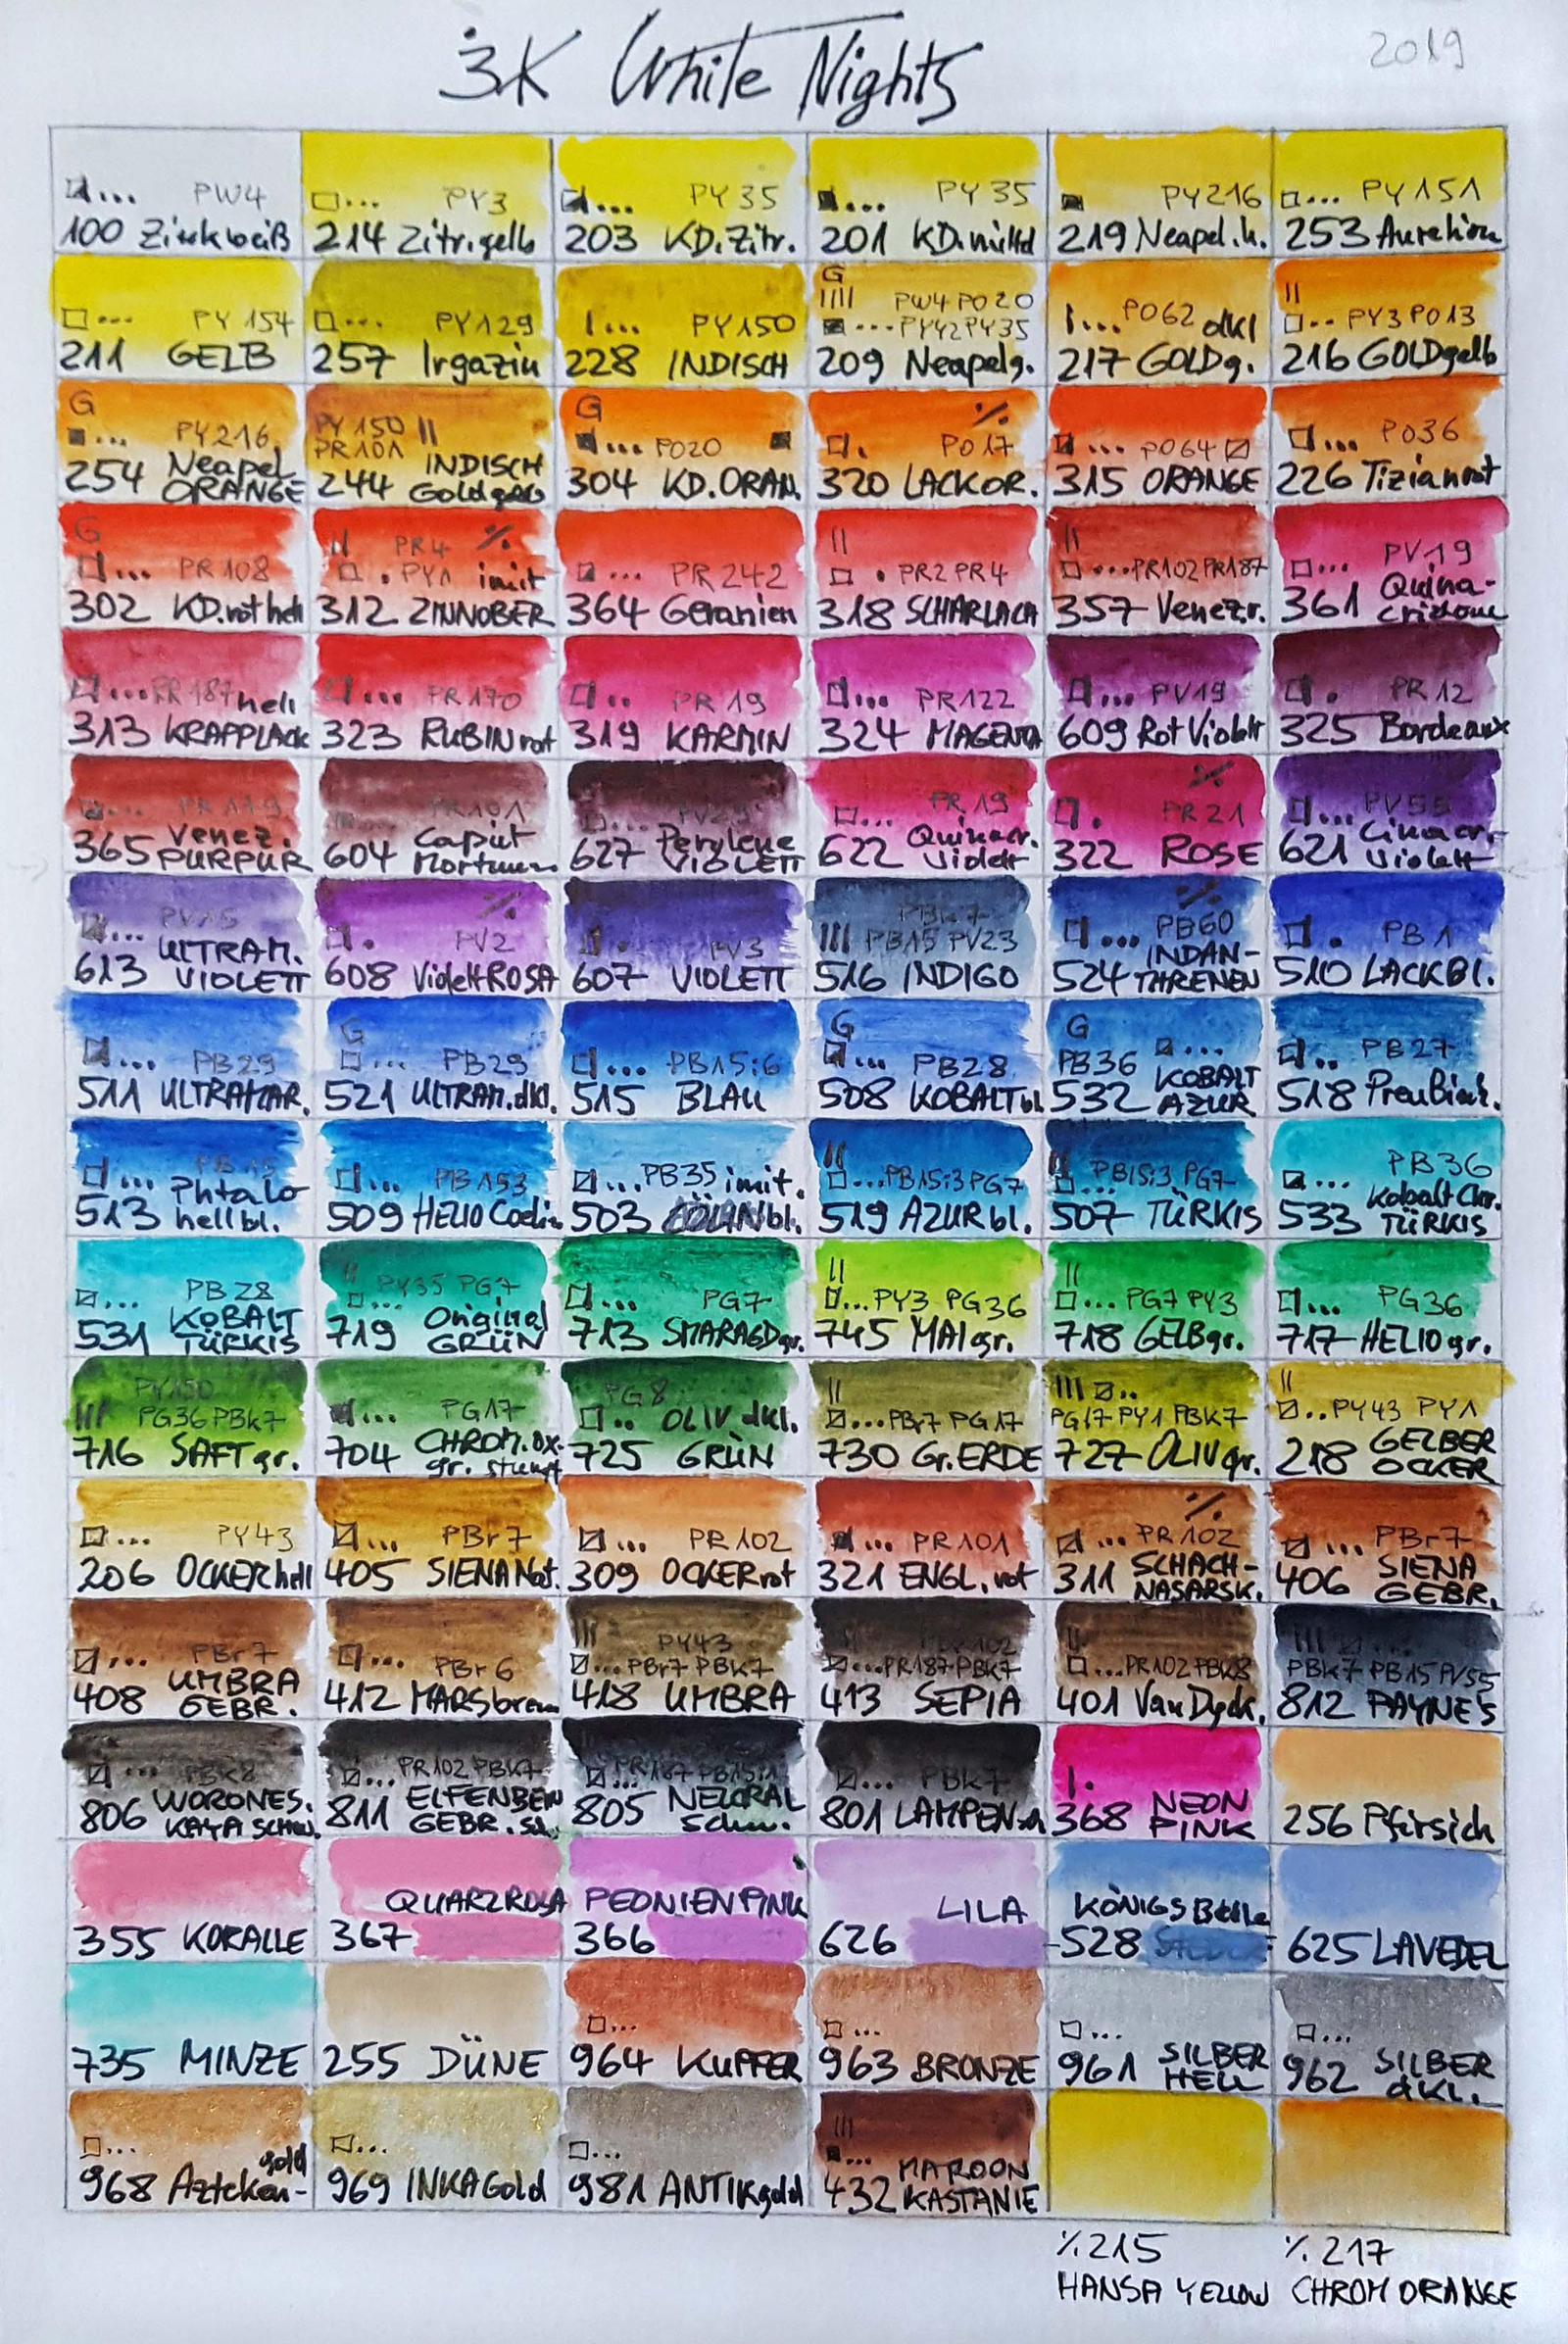 3K White Nights
2019
PW4
100 Zinkweiß
PY3
214 Zitr.gelb
PY35
203 KD.Zitr.
PY35
201 KD.mittel
PY216
219 Neapel.h.
PY151
253 Aureliom
PY154
211 GELB
PY129
257 Irgazin
PY150
228 INDISCH
G
PW4 PO20
PY42 PY35
209 Neapelg.
PO62 dkl
217 GOLDg.
PY3 PO13
216 GOLDgelb
G
PY216
254 Neapel
ORANGE
PY150
PR101
244 INDISCH
Goldgelb
G
PO20
304 KD.ORAN.
%
PO17
320 LACKOR.
PO64
315 ORANGE
PO36
226 Tizianrot
G
PR108
302 KD.rot hell
PR4 %
PY1 imit
312 ZINNOBER
PR242
364 Geranien
PR2 PR4
318 SCHARLACH
PR102 PR187
357 Venez.r.
PV19
361 Quina-
cridone
PR187 hell
313 KRAPPLACK
PR170
323 RUBINrot
PR19
319 KARMIN
PR122
324 MAGENTA
PV19
609 Rot Violett
PR12
325 Bordeaux
PR179
365 Venez.
PURPUR
PR101
604 Caput
Mortuum
PV29
627 Perylene
VIOLETT
PR19
622 Quinacr.
Violett
%
PR21
322 ROSE
PV55
621 Cinacr.
Violett
PV15
613 ULTRAM.
VIOLETT
%
PV2
608 ViolettROSA
PV3
607 VIOLETT
PBk7
PB15 PV23
516 INDIGO
%
PB60
524 INDAN-
THRENEN
PB1
510 LACKBl.
PB29
511 ULTRAMAR.
G
PB29
521 ULTRAM.dkl.
PB15:6
515 BLAU
G
PB28
508 KOBALTbl
G
PB36
532 KOBALT
AZUR
PB27
518 Preußisch.
PB15
513 Phtalo
hellbl.
PB153
509 HELIO Coelin
PB35 imit.
503 CÖLINbl.
PB15:3 PG7
519 AZURbl.
PB15:3 PG7
507 TÜRKIS
PB36
533 Kobalt Chr.
TÜRKIS
PB28
531 KOBALT
TÜRKIS
PY35 PG7
719 Original
GRÜN
PG7
713 SMARAGDgr.
PY3 PG36
745 MAIgr.
PG7 PY3
718 GELBgr.
PG36
717 HELIOgr.
PY150
PG36 PBk7
716 SAFTgr.
PG17
704 CHROM.ox.
gr. stumpf
PG8
OLIV dkl.
725 GRÜN
PBr7 PG17
730 Gr.ERDE
PG17 PY1 PBK7
727 OLIVgr.
PY43 PY1
218 GELBER
OCKER
PY43
206 OCKERhell
PBr7
405 SIENA Nat.
PR102
309 OCKERrot
PR101
321 ENGL.rot
%
PR102
311 SCHACH-
NASARSK.
PBr7
406 SIENA
GEBR.
PBr7
408 UMBRA
GEBR.
PBr6
412 MARSbraun
PY43
PBr7 PBk7
418 UMBRA
PBr102
PR187 PBk7
413 SEPIA
PR102 PBk8
401 Van Dyck.
PBk7 PB15 PV55
812 PAYNE'S
PBk8
806 WORONES.
KAYA Schw.
PR102 PBk7
811 ELFENBEIN
GEBR.sch.
PR187 PB15:1
805 NEUTRAL
Schw.
PBk7
801 LAMPENsch
368 NEON
PINK
256 Pfirsich
355 KORALLE
QUARZROSA
367
PEONIENPINK
366
LILA
626
KÖNIGSBlau
528
625 LAVEDEL
735 MINZE
255 DÜNE
964 KUPFER
963 BRONZE
961 SILBER
HELL
962 SILBER
dKl.
968 Azteken-
gold
969 INKAGold
981 ANTIKgold
432 MAROON
KASTANIE
% 215
HANSA YELLOW
% 217
CHROM ORANGE